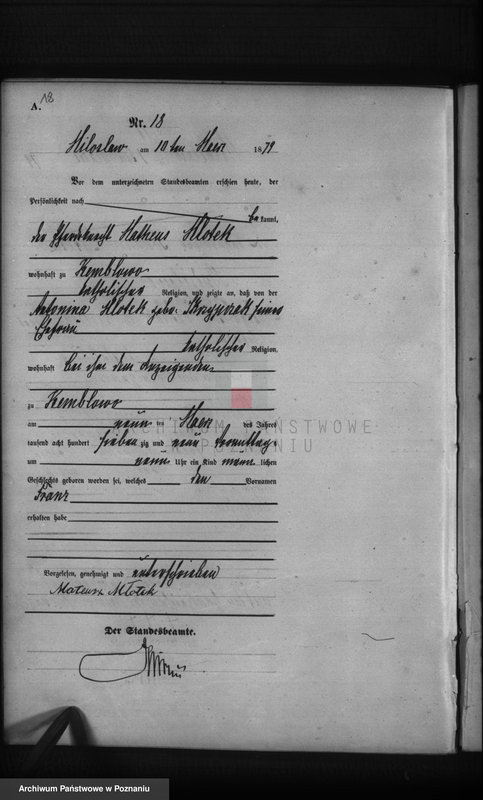 18
A.
Nr. 18
Miloslaw am 10ten Maerz 1879
Vor dem unterzeichneten Standesbeamten erschien heute, der
Persönlichkeit nach
bekannt,
der Pferdeknecht Matheus Mlotek
wohnhaft zu Kemblowo
katholischer Religion, und zeigte an, daß von der
Antonina Mlotek geb. Skrzypczak seiner
Ehefrau
katholischer Religion,
wohnhaft bei ihm dem Anzeigenden
zu Kemblowo
am neun ten Maerz des Jahres
tausend acht hundert sieben zig und neun Vormittags
um neun Uhr ein Kind männ lichen
Geschlechts geboren worden sei, welches den Vornamen
Franz
erhalten habe
Vorgelesen, genehmigt und unterschrieben
Mateusz Młotek
Der Standesbeamte.
ARCHIWUM PAŃSTWOWE
W POZNANIU
Archiwum Państwowe w Poznaniu